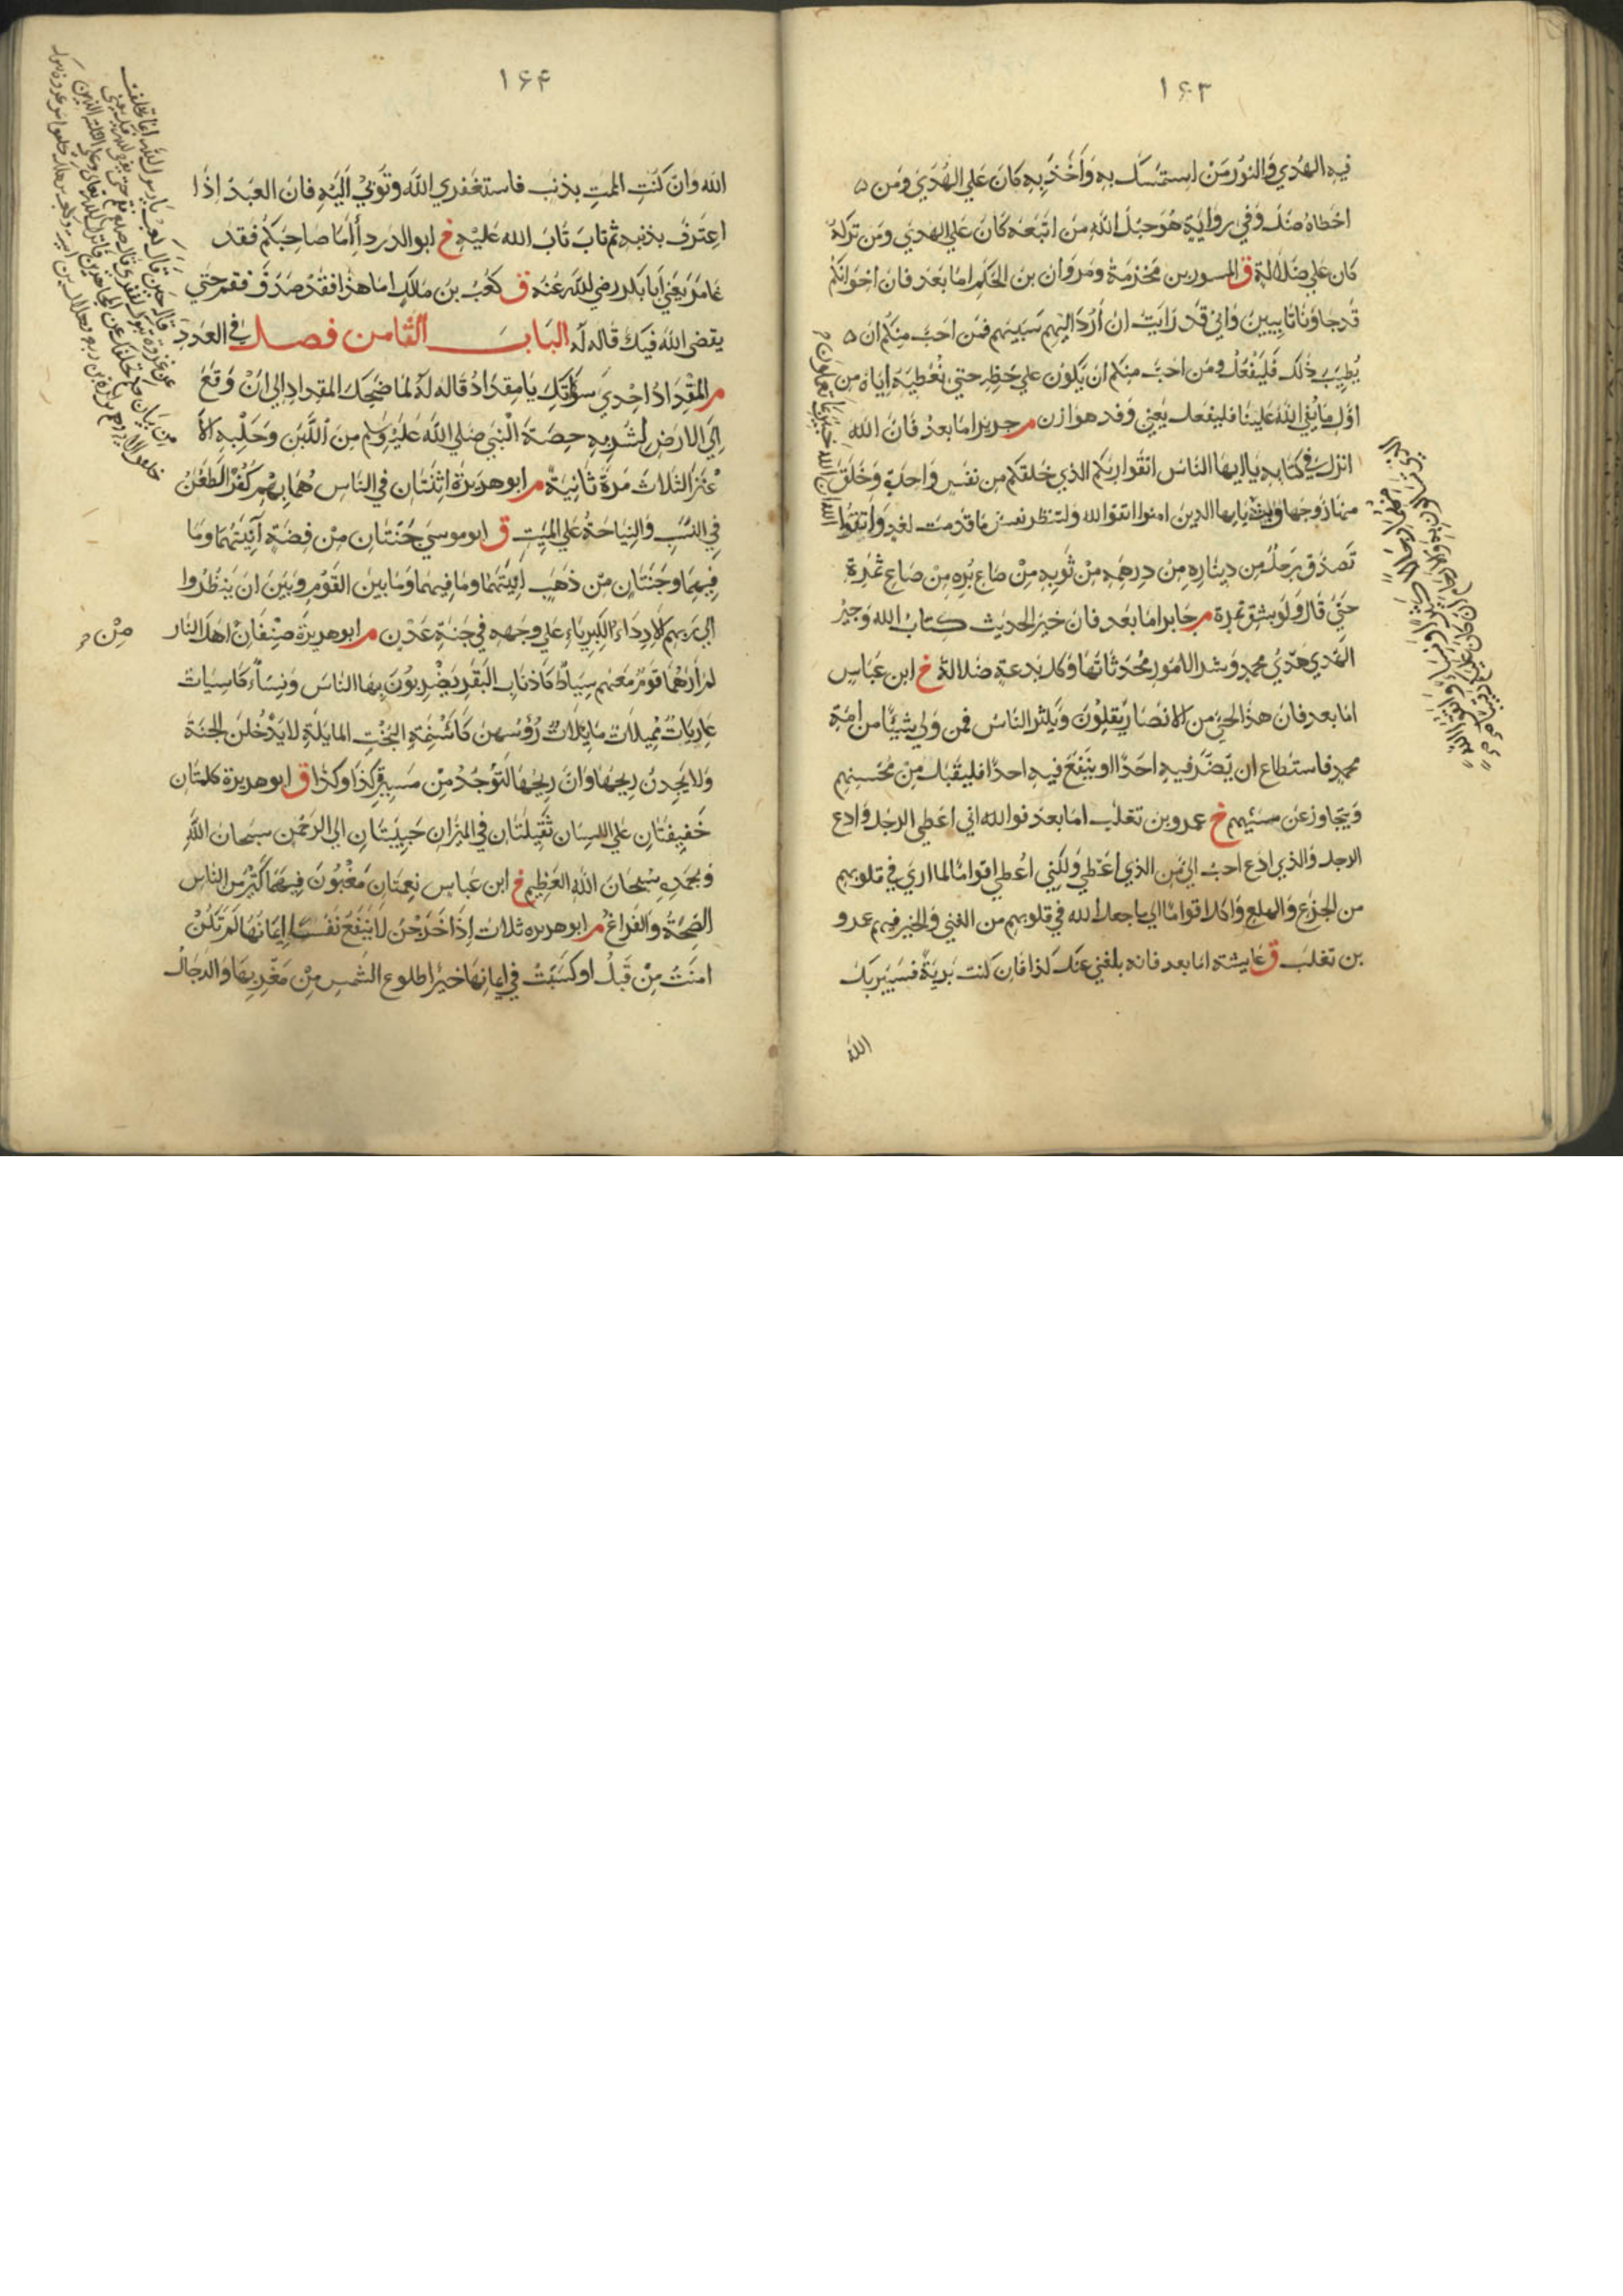 ۱۶۳
فيه الهُدي وَالنور مَنْ استمسك به وَاَخَذَ بِه كانَ علي الهُدَي ومَن
اخطاهُ ضلَّ وَفي روَايَة هُوَ حبْلُ اللهِ مَن اتّبَعَهُ كانَ عَلي الهدي ومَن تركهُ
كان علي ضلالة ق المسور بن مَخرَمة ومَروَان بن الحَكم امّا بَعد فان اخوَانكم
قد جاؤنا تايبين وَاني قد رَايت ان اَرُدَّ اليهم سَبيهم فمن احَبَّ منكم ان
يُطيّبَ ذلك فليَفعَلْ ومَن احَبَّ منكم ان يكون علي حَظه حتي نُعْطيَهُ اياهُ من
اوّل مَا يُفي اللهُ علينا فليفعل يَعني وفد هوازن م جرير امّا بعدُ فانّ الله
انزل في كتابه يا ايها الناسُ اتقوا ربكم الذي خَلقكم من نفسٍ وَاحِدة وَخَلَقَ
منها زوجها يا يها الذين امنوا اتقوا الله ولتنظر نفس مَا قدمت لغدٍ وَاتقوا
تَصَدّق رَجلٌ مِن دينَارِهِ مِن دِرهَمِه مِن ثوبِهِ مِنْ صَاع بُرِه مِنْ صَاع تمرِهِ
حَتّي قال وَلو بشق تمرة م جَابر امّا بعد فان خيرَ الحديث كتابُ الله وَخيرُ
الهَدي هَدْي محمدٍ وَشر الامُور مُحْدثاتهَا وَكل بدعة ضلالة خ ابن عَبّاسٍ
امّا بعد فان هذا الحيّ من الانصَار يَقلِوْنَ وَيكثر الناسُ فمن وَلي شيئًا من امّة
محمدٍ فاستطاع ان يَضُرَّ فيهِ احَدًا او ينفعَ فيهِ احدًا فليقبَل مِنْ مُحْسِنهِم
وَيتجاوز عن مسيئهم خ عمرو بن تغلب امّا بعدُ فوالله اني اُعْطي الرجُلَ وَادع
الرجلَ والذي ادَعُ احبُّ اليَّ مِن الذي اُعْطي وَلكني اُعْطي اقوامًا لما اري في قلوبهم
من الجزَع وَالهلع وَاكل اقوامًا الي ما جعل الله في قلوبهم من الغني وَالخير فيهم عمرو
بن تغلبَ ق عَايشة امّا بعد فانه بلغني عنكِ كذا فان كنتِ بَريّةً فسَيُبَرّيكِ
الله
۱۶۴
الله وَان كنتِ الممتِ بذنب فاستغفري اللهَ وتُوبيْ اليه فان العَبدَ اذا
اعتَرفَ بذنبه ثم تابَ تابَ الله عَليْهِ خ ابو الدرداء امّا صَاحبَكم فقد
غامَرَ يَعني اَبا بَكر رضي الله عَنه ق كعبُ بن مَالكٍ امّا هذا فقدْ صَدَقَ فقم حتي
يقضي اللهُ فيكَ قاله لهُ البَابَ الثامن فصل في العَدَدِ
م المِقْدَادُ احْدي سَوْآتكَ يَا مِقدَادُ قاله لهُ لمّا ضَحِكَ المقداد الي انْ وَقعَ
اِلي الارض لشُربه حِصّةَ النبي صَلي اللهُ عَليْهِ وَسَلم مِنَ اللّبَن وَحَلْبِهِ الا
عْنُزَ الثلاث مَرةً ثانيَةً م ابو هريرَة اثنتَان في الناس هُمَا بِهِم كُفرٌ الطَعْنُ
في النّسَبِ وَالنِيَاحَة عَلي المَيّت ق ابو موسي جَنّتَانِ مِنْ فِضّةٍ آنيَتُهُمَا وَمَا
فِيهِمَا وَجَنّتَانِ مِن ذهَبٍ انِيَتُهُمَا ومَا فيهمَا وَمَا بين القَوْمِ وَبَيْنَ ان ينظُرُوا
الي رَبهم اِلا رِدَاءُ الكِبرِيَاءِ عَلي وَجهه في جَنّةِ عَدْنٍ م ابو هريرة صِنْفان اهل النار
مِنْ
لم اَرَهُمَا قومٌ مَعَهُم سِيَاطٌ كاَذناب البَقَر يَضْرِبُوْنَ بهَا الناسَ وَنِسَاءٌ كاسِيَات
عَارِيَاتٌ مُميلاتٌ مَايلاتٌ رُؤسُهُنّ كأَسْنمَةِ البُخْتِ المايلةِ لا يَدْخُلنَ الجنةَ
وَلا يَجِدنَ ريحَهَا وَانّ ريحَهَا لتوْجَدُ مِنْ مَسيرةِ كذا وَكذا ق ابو هريرة كلمتَان
خَفِيفتَانِ عَلي اللسَان ثَقِيلتَان في الميزَان حَبِيبَتَانِ الي الرحمٰن سبحانَ اللهِ
وَبحَمدِه سُبْحَانَ اللهِ العَظِيم خ ابن عَباسٍ نعمتَان مَغبُونٌ فيهما كَثيرٌ من الناس
الصِّحَةُ وَالفَرَاغُ م ابو هريره ثلاث اِذا خَرَجْنَ لا يَنفَعُ نَفسًا اِيمَانُهَا لم تكنْ
امَنَتْ مِنْ قَبلُ او كَسَبَتْ في ايمانِهَا خيرًا طلوع الشمسِ مِنْ مَغْرِبِهَا وَالدجَّالُ